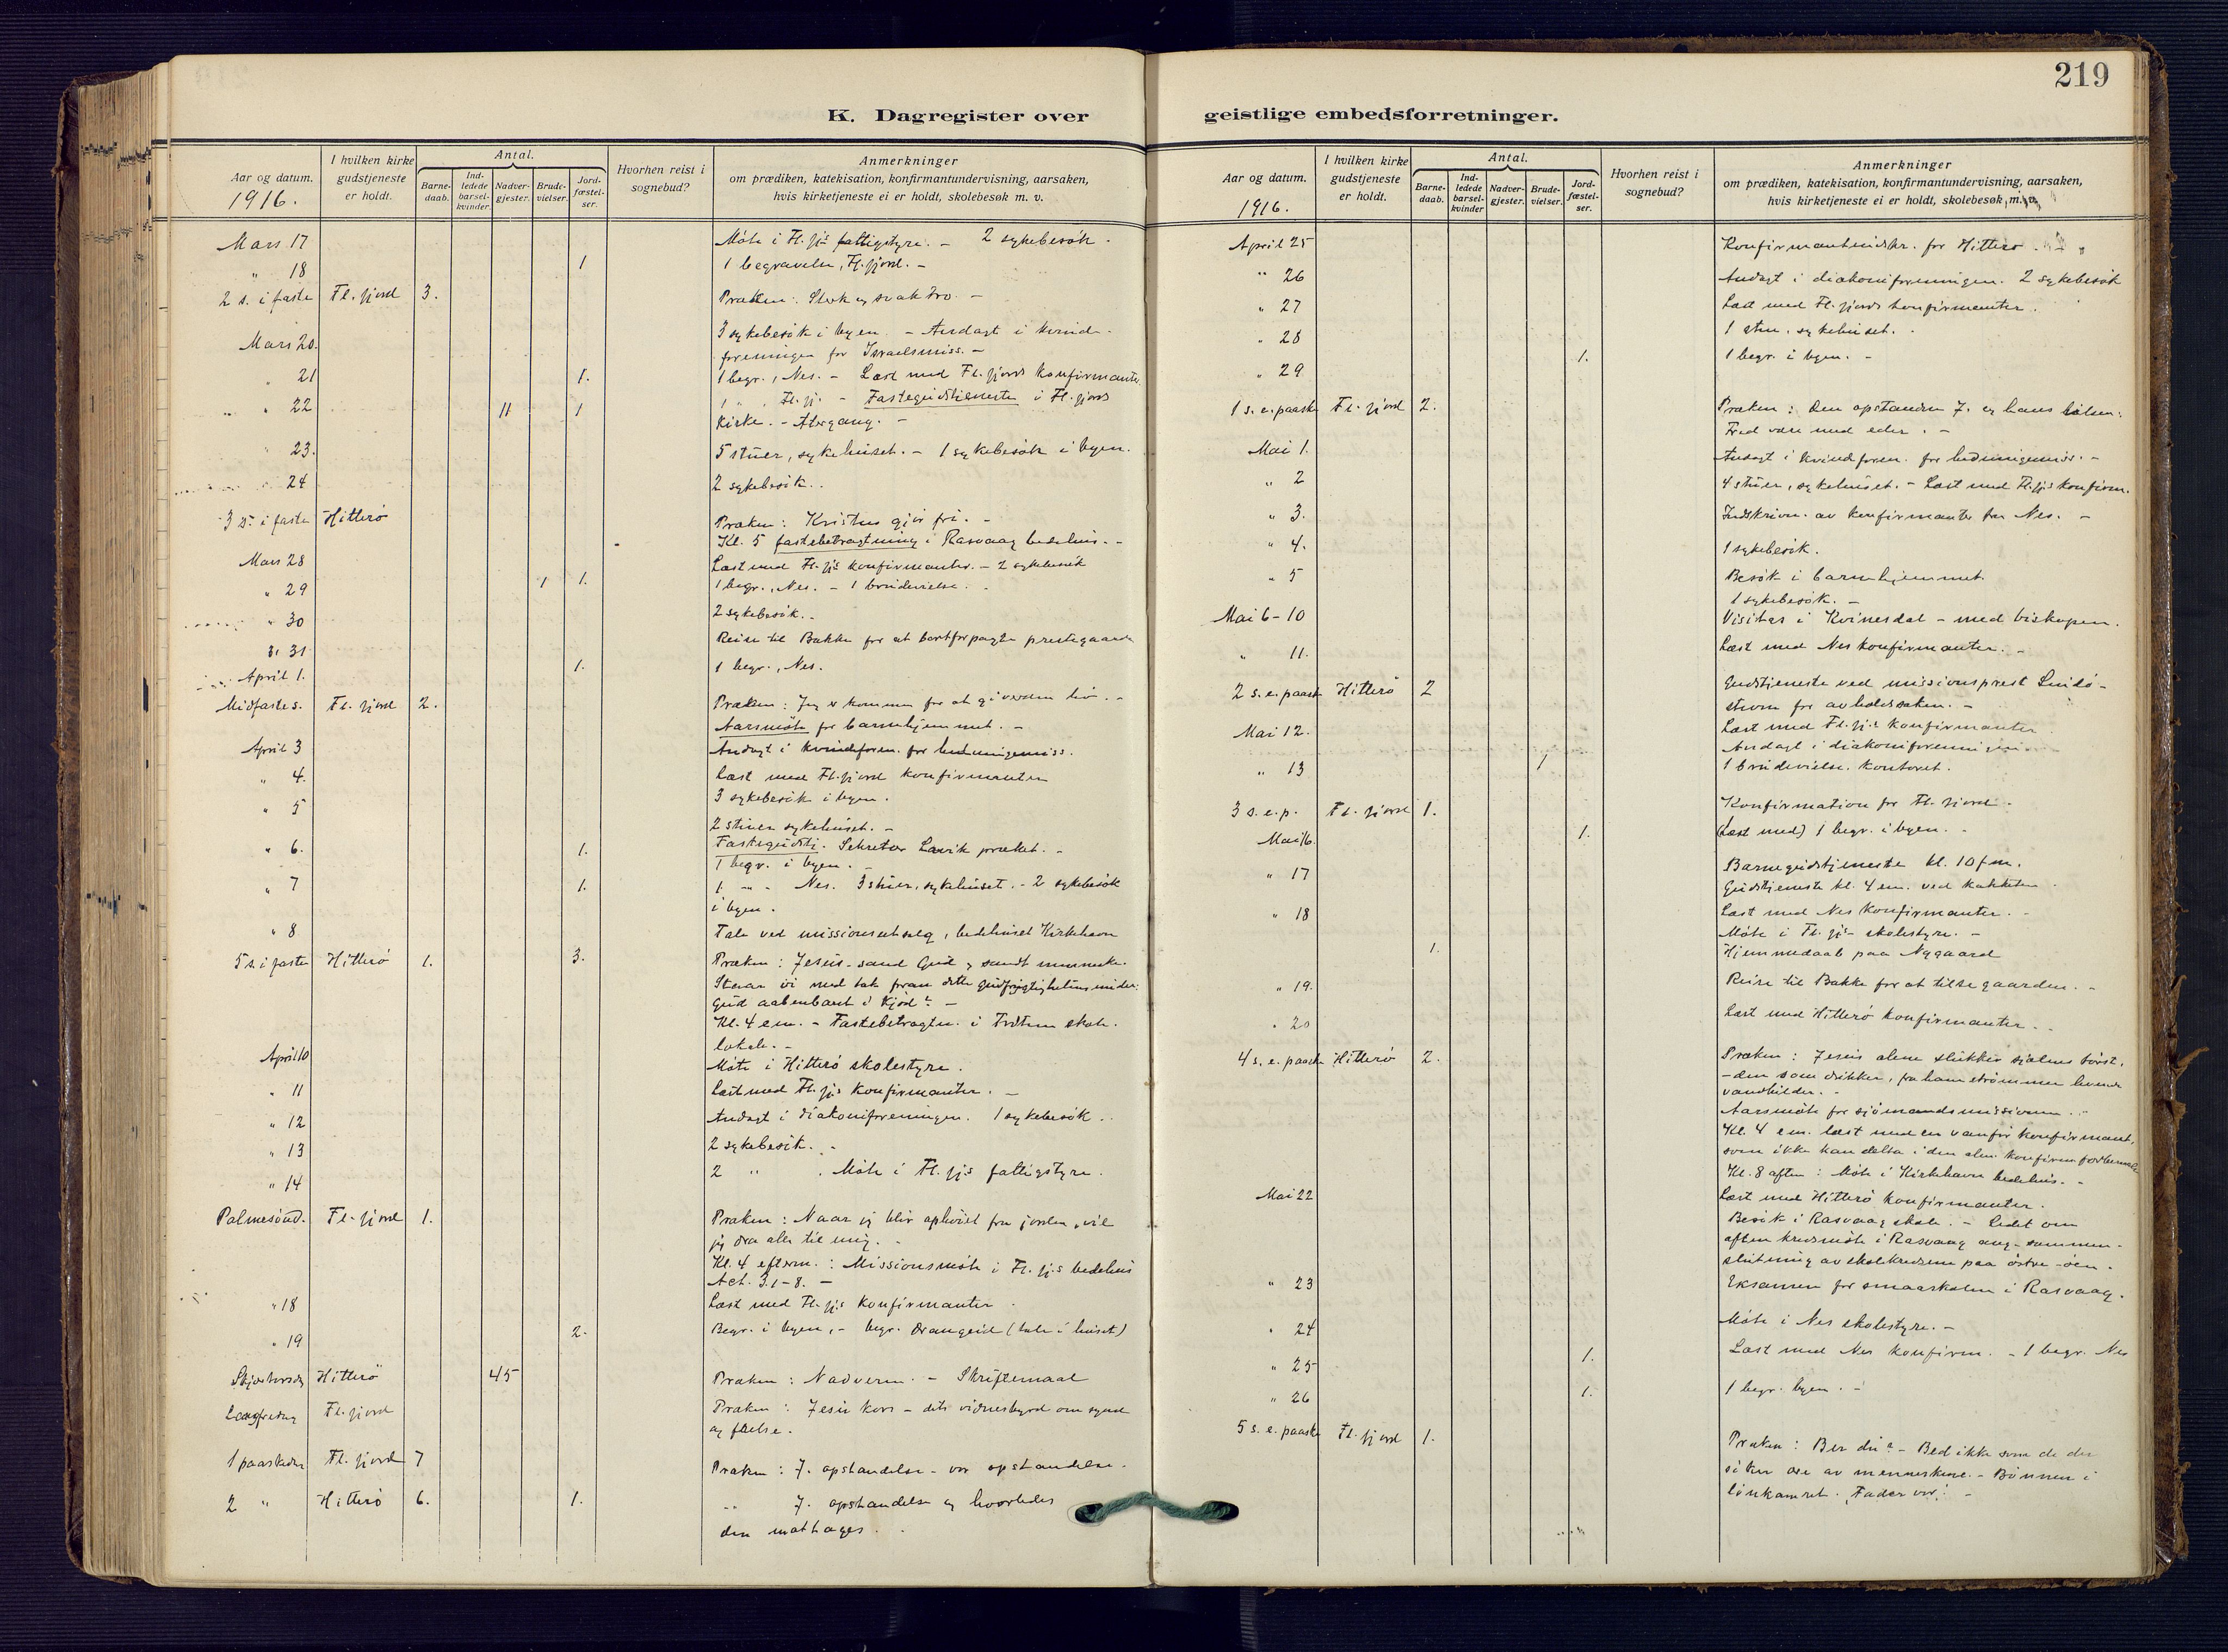 219
K. Dagregister over
Aar og datum.
1916.
I hvilken kirke gudstjeneste er holdt.
Antal.
Barnedaab.
Indledede barselkvinder.
Nadvergjester.
Brudevielser.
Jordfæstelser.
Hvorhen reist i sognebud?
Anmerkninger
om prædiken, katekisation, konfirmantundervisning, aarsaken,
hvis kirketjeneste ei er holdt, skolebesøk m. v.
Mars 17 Möte i Fl.fjs fattigstyre. - 2 sykebesök.
" 18 1 1 begravelse, Fl.fjord. -
2 s. i faste Fl. fjord 3. Præken: Sterk og svak tro. -
Mars 20. 3 sykebesök i byen. - Andagt i kvinde-
foreningen for Israelsmiss. -
" 21 1. 1 begr., Nes. - Læst med Fl. fjords konfirmanter.
" 22 11 1 1 " , Fl. fj. - Fastegudstjeneste i Fl. fjords
kirke. - Altergang. -
" 23. 5 stuer, sykehuset. - 1 sykebesök i byen.
" 24 2 sykebesök.
3 s. i faste Hitterö Præken: Kristus gjör fri. -
Kl. 5 fastebetragtning i Rasvaag bedehus. -
Mars 28 Læst med Fl. fjs konfirmanter. - 2 sykebesök
" 29 1 1. 1 begr., Nes. - 1 brudevielse.
" 30 2 sykebesök. -
" 31 Reise til Bakke for at bortforpagte prestegaarden
April 1. 1. 1 begr., Nes.
Midfastes. Fl. fjord 2. Præken: Jeg er kommen for at gi verden liv. -
Aarsmöte for barnehjemmet. -
April 3 Andagt i kvindeforen. for hedningemiss.
" 4. Læst med Fl. fjord konfirmanter
" 5 3 sykebesök i byen.
2 stuer sykehuset. -
" 6. 1. Fastegudstj. Sekretær Lavik præket. -
1 begr. i byen. -
" 7 1. 1. " - Nes. 3 stuer, sykehuset. - 2 sykebesök
i byen.
" 8 Tale ved missionsutsalg, bedehuset Kirkehavn
5 s. i faste Hitterö 1. 3. Præken: Jesus - sand Gud og sandt menneske.
Staar vi med tak foran dette
Gud aabenbaret i kjöd? -
Kl. 4 em. - Fastebetragtn. i skole-
lokale. -
April 10 Möte i Hitterö skolestyre.
" 11 Læst med Fl. fjs konfirmanter. -
" 12 Andagt i diakoniforeningen. 1 sykebesök.
" 13 2 sykebesök. -
" 14 2 " . Möte i Fl. fjs fattigstyre.
Palmesönd. Fl. fjord 1. Præken: Naar jeg blir ophöiet fra jorden, vil
jeg dra alle til mig. -
Kl. 4 efterm.: Missionsmöte i Fl. fj.s bedehus
Act. 3.1-8. -
" 18 Læst med Fl. fjs konfirmanter.
" 19 2. Begr. i byen, - begr. Drangeid (tale i huset)
Skjærtorsdag Hitterö 45 Præken: Nadveren. - Skriftemaal
Langfredag Fl. fjord Præken: Jesu kors - dets vidnesbyrd om synd
og frelse.
1 paaskedag Fl. fjord 7 Præken: J. opstandelse - vor opstandelse.
2 " Hitterö 6. 1. " J. opstandelse og hvorledes
den mottages.
geistlige embedsforretninger.
Aar og datum.
1916.
I hvilken kirke gudstjeneste er holdt.
Antal.
Barnedaab.
Indledede barselkvinder
Nadvergjester.
Brudevielser.
Jordfæstelser.
Hvorhen reist i sognebud?
Anmerkninger
om prædiken, katekisation, konfirmantundervisning, aarsaken,
hvis kirketjeneste ei er holdt, skolebesøk, m. v.
April 25 Konfirmantindskr. for Hitterö.
" 26 Andagt i diakoniforeningen. 2 sykebesök
" 27 Læst med Fl. fjords konfirmanter.
" 28 1 stue, sykehuset.
" 29 1. 1 begr. i byen. -
1 s. e. paaske Fl. fjord 2. Præken: Den opstandne J. og hans hilsen:
Fred være med eder. -
Mai 1. Andagt i kvindforen. for hedningemiss. -
" 2 4 stuer, sykehuset. - Læst med Fl. fjs konfirm.
" 3. Indskrivn. av konfirmanter fra Nes. -
" 4. 1 sykebesök.
" 5 Besök i barnehjemmet.
1 sykebesök. -
Mai 6-10 Visitas i Kvinesdal - med biskopen.
" 11. Læst med Nes konfirmanter. -
2 s. e. paaske Hitterö 2 Gudstjeneste ved missionsprest Lindö-
strøm for avholdssaken. -
Mai 12. Læst med Fl. fj.s konfirmanter
Andagt i diakoniforeningen.
" 13 1 1 brudevielse. kontoret.
3 s. e. p. Fl. fjord 1. Konfirmation for Fl. fjord.
Mai 16 1. (Læst med) 1 begr. i byen. -
" 17 Barnegudstjeneste kl. 10 fm.
Gudstjeneste kl. 4 em. ved
" 18 Læst med Nes konfirmanter. -
Möte i Fl. fjs skolestyre. -
1. Hjemmedaab paa Nygaard
" 19. Reise til Bakke for at tilse gaarden. -
" 20 Læst med Hitterö konfirmanter. -
4 s. e. paaske Hitterö 2. Præken: Jesus alene slukker sjælens törst.
- den som drikker, fra ham strömmer levende
vandkilder. -
Aarsmöte for sjömandsmissionen. -
Kl. 4 em. læst med en vanför konfirmant,
som ikke kan delta i den alm. konfirm.forberedelse
Kl. 8 aften: Möte i Kirkehavn bedehus. -
Mai 22 Læst med Hitterö konfirmanter.
Besök i Rasvaag skole. - Ledet om
aften kredsmöte i Rasvaag ang. sammen-
slutning av skolekredsene paa östre öen.
" 23 Eksamen for smaaskolen i Rasvaag.
" 24 Möte i Nes skolestyre. -
" 25 1. Læst med Nes konfirm. - 1 begr. Nes
" 26 1. 1 begr. byen. -
5 s. e. paaske Fl. fjord 1. Præken: Ber du? - Bed ikke som de der
söker ære av menneskene. - Bönnen i
lönkamret. "Fader vor". -